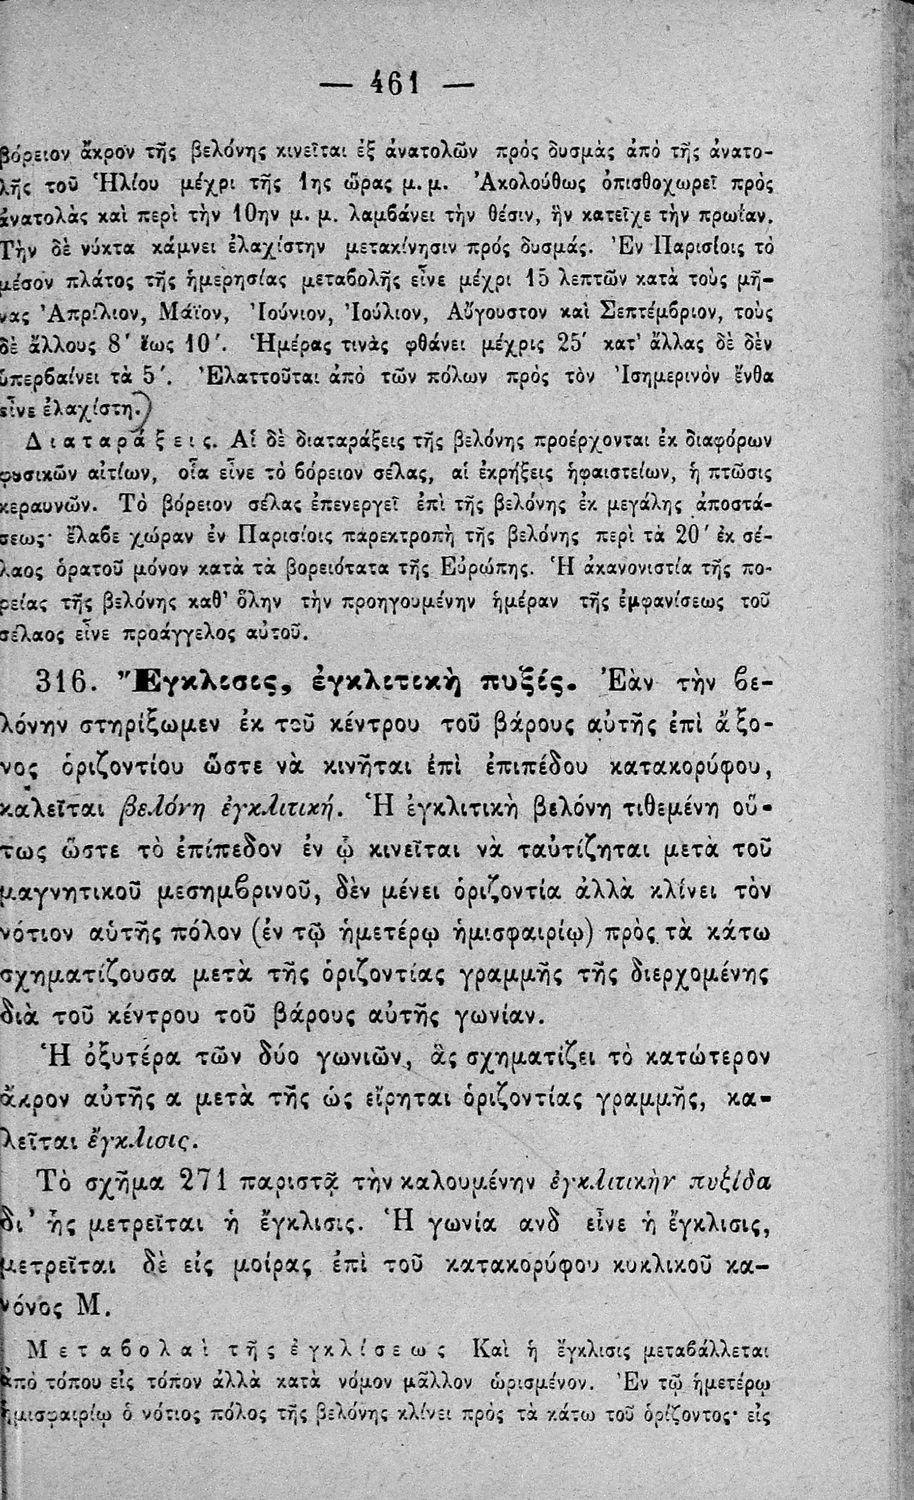 — 461 —
βόρειον ἄκρον τῆς βελόνης κινεῖται ἐξ ἀνατολῶν πρὸς δυσμὰς ἀπὸ τῆς ἀνατο-
λῆς τοῦ Ἡλίου μέχρι τῆς 1ης ὥρας μ. μ. Ἀκολούθως ὀπισθοχωρεῖ πρὸς
ἀνατολὰς καὶ περὶ τὴν 10ην μ. μ. λαμβάνει τὴν θέσιν, ἣν κατεῖχε τὴν πρωΐαν.
Τὴν δὲ νύκτα κάμνει ἐλαχίστην μετακίνησιν πρὸς δυσμάς. Ἐν Παρισίοις τὸ
μέσον πλάτος τῆς ἡμερησίας μεταβολῆς εἶνε μέχρι 15 λεπτῶν κατὰ τοὺς μῆ-
νας Ἀπρίλιον, Μάϊον, Ἰούνιον, Ἰούλιον, Αὔγουστον καὶ Σεπτέμβριον, τοὺς
δὲ ἄλλους 8′ ἕως 10′. Ἡμέρας τινὰς φθάνει μέχρις 25′ κατ' ἄλλας δὲ δὲν
ὑπερβαίνει τὰ 5′. Ἐλαττοῦται ἀπὸ τῶν πόλων πρὸς τὸν Ἰσημερινὸν ἔνθα
εἶνε ἐλαχίστη.)
Διαταράξεις. Αἱ δὲ διαταράξεις τῆς βελόνης προέρχονται ἐκ διαφόρων
φυσικῶν αἰτίων, οἷα εἶνε τὸ βόρειον σέλας, αἱ ἐκρήξεις ἡφαιστείων, ἡ πτῶσις
κεραυνῶν. Τὸ βόρειον σέλας ἐπενεργεῖ ἐπὶ τῆς βελόνης ἐκ μεγάλης ἀποστά-
σεως· ἔλαβε χώραν ἐν Παρισίοις παρεκτροπὴ τῆς βελόνης περὶ τὰ 20′ ἐκ σέ-
λαος ὁρατοῦ μόνον κατὰ τὰ βορειότατα τῆς Εὐρώπης. Ἡ ἀκανονιστία τῆς πο-
ρείας τῆς βελόνης καθ' ὅλην τὴν προηγουμένην ἡμέραν τῆς ἐμφανίσεως τοῦ
σέλαος εἶνε προάγγελος αὐτοῦ.
316. Ἔγκλισις, ἐγκλιτικὴ πυξίς. Ἐὰν τὴν βε-
λόνην στηρίξωμεν ἐκ τοῦ κέντρου τοῦ βάρους αὐτῆς ἐπὶ ἄξο-
νος ὁριζοντίου ὥστε νὰ κινῆται ἐπὶ ἐπιπέδου κατακορύφου,
καλεῖται βελόνη ἐγκλιτική. Ἡ ἐγκλιτικὴ βελόνη τιθεμένη οὕ-
τως ὥστε τὸ ἐπίπεδον ἐν ᾧ κινεῖται νὰ ταὐτίζηται μετὰ τοῦ
μαγνητικοῦ μεσημβρινοῦ, δὲν μένει ὁριζοντία ἀλλὰ κλίνει τὸν
νότιον αὑτῆς πόλον (ἐν τῷ ἡμετέρῳ ἡμισφαιρίῳ) πρὸς τὰ κάτω
σχηματίζουσα μετὰ τῆς ὁριζοντίας γραμμῆς τῆς διερχομένης
διὰ τοῦ κέντρου τοῦ βάρους αὐτῆς γωνίαν.
Ἡ ὀξυτέρα τῶν δύο γωνιῶν, ἃς σχηματίζει τὸ κατώτερον
ἄκρον αὐτῆς α μετὰ τῆς ὡς εἴρηται ὁριζοντίας γραμμῆς, κα-
λεῖται ἔγκλισις.
Τὸ σχῆμα 271 παριστᾷ τὴν καλουμένην ἐγκλιτικὴν πυξίδα
δι' ἧς μετρεῖται ἡ ἔγκλισις. Ἡ γωνία ανδ εἶνε ἡ ἔγκλισις,
μετρεῖται δὲ εἰς μοίρας ἐπὶ τοῦ κατακορύφου κυκλικοῦ κα-
νόνος Μ.
Μεταβολαὶ τῆς ἐγκλίσεως Καὶ ἡ ἔγκλισις μεταβάλλεται
ἀπὸ τόπου εἰς τόπον ἀλλὰ κατὰ νόμον μᾶλλον ὡρισμένον. Ἐν τῷ ἡμετέρῳ
ἡμισφαιρίῳ ὁ νότιος πόλος τῆς βελόνης κλίνει πρὸς τὰ κάτω τοῦ ὁρίζοντος· εἰς